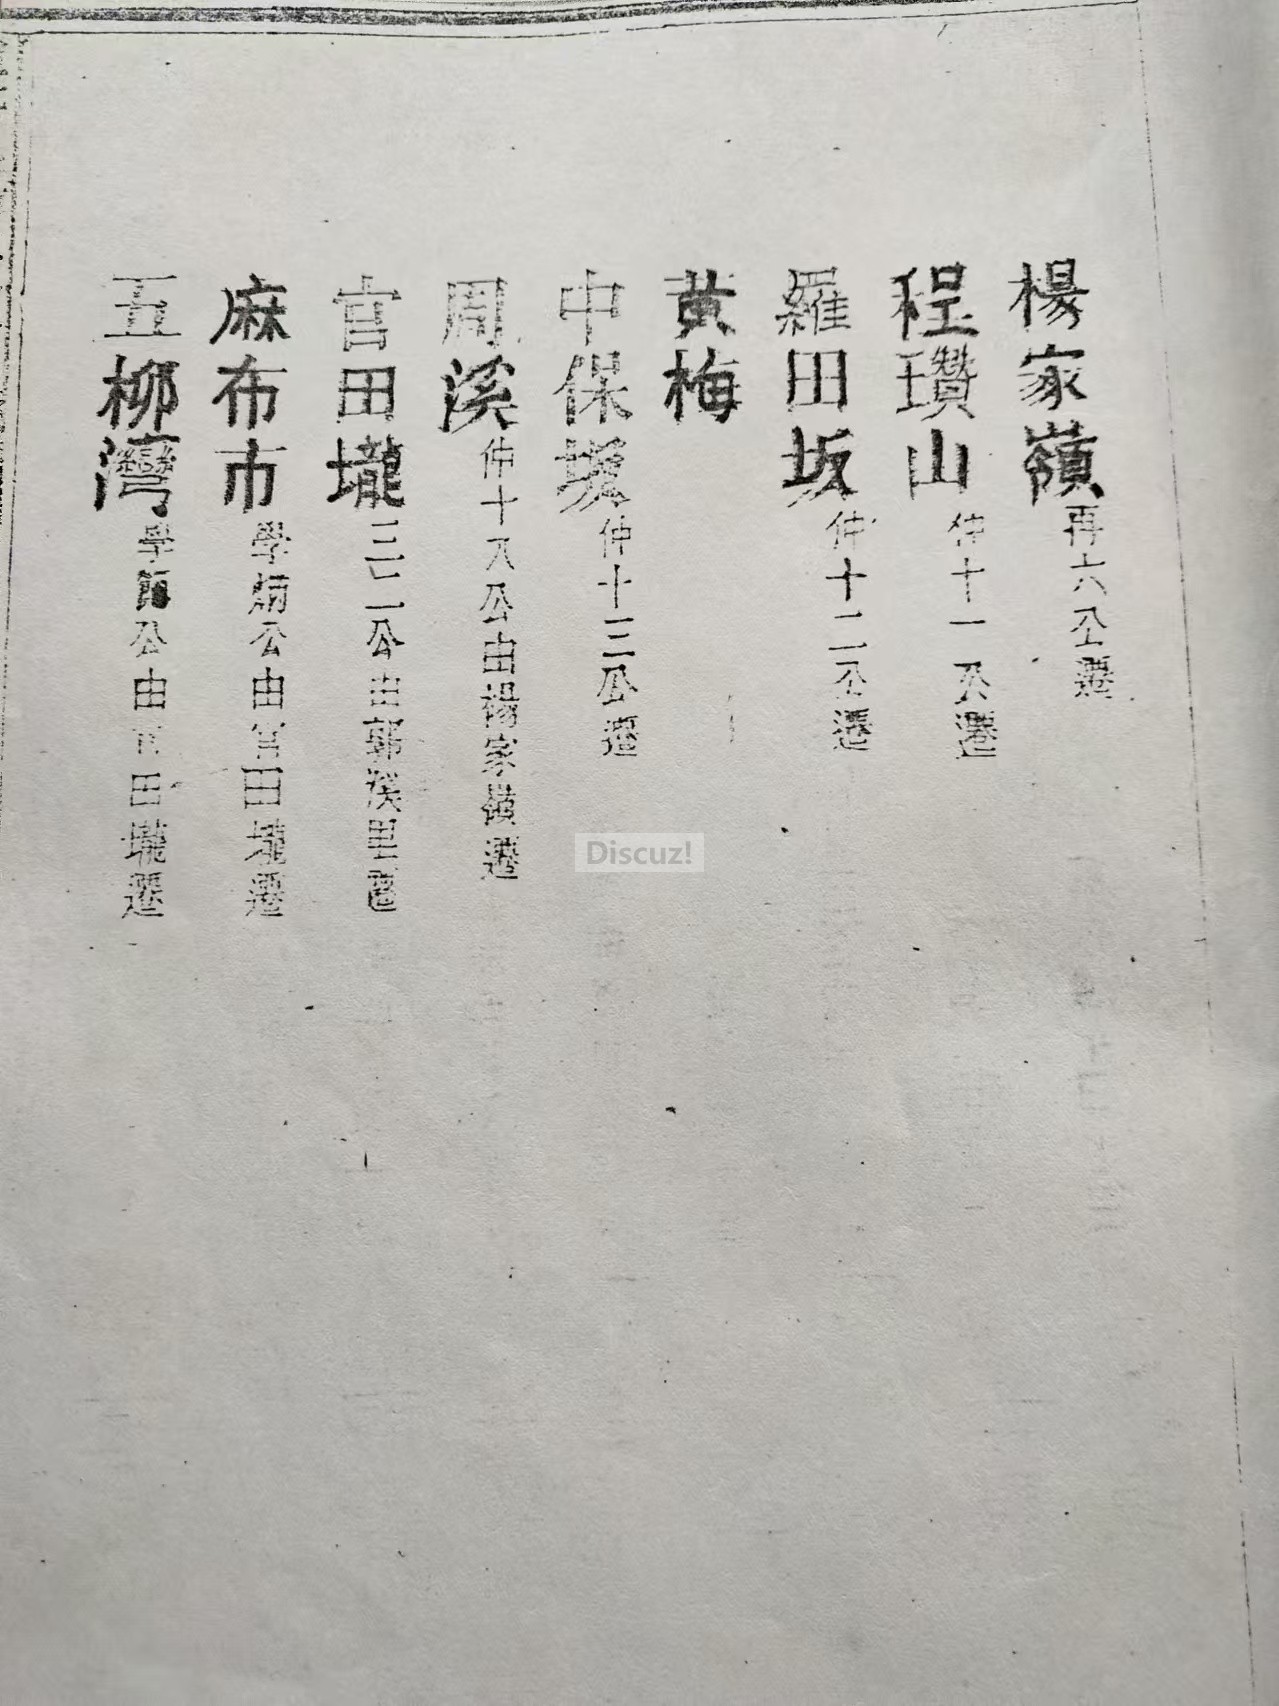 楊家嶺再六公遷
程瓚山仲十一公遷
羅田坂仲十二公遷
黄梅
中保坂仲十三公遷
周溪仲十八公由楊家嶺遷
官田壠三二公由郭溪里遷
麻布市學炳公由官田壠遷
五柳灣學公由官田壠遷
Discuz!